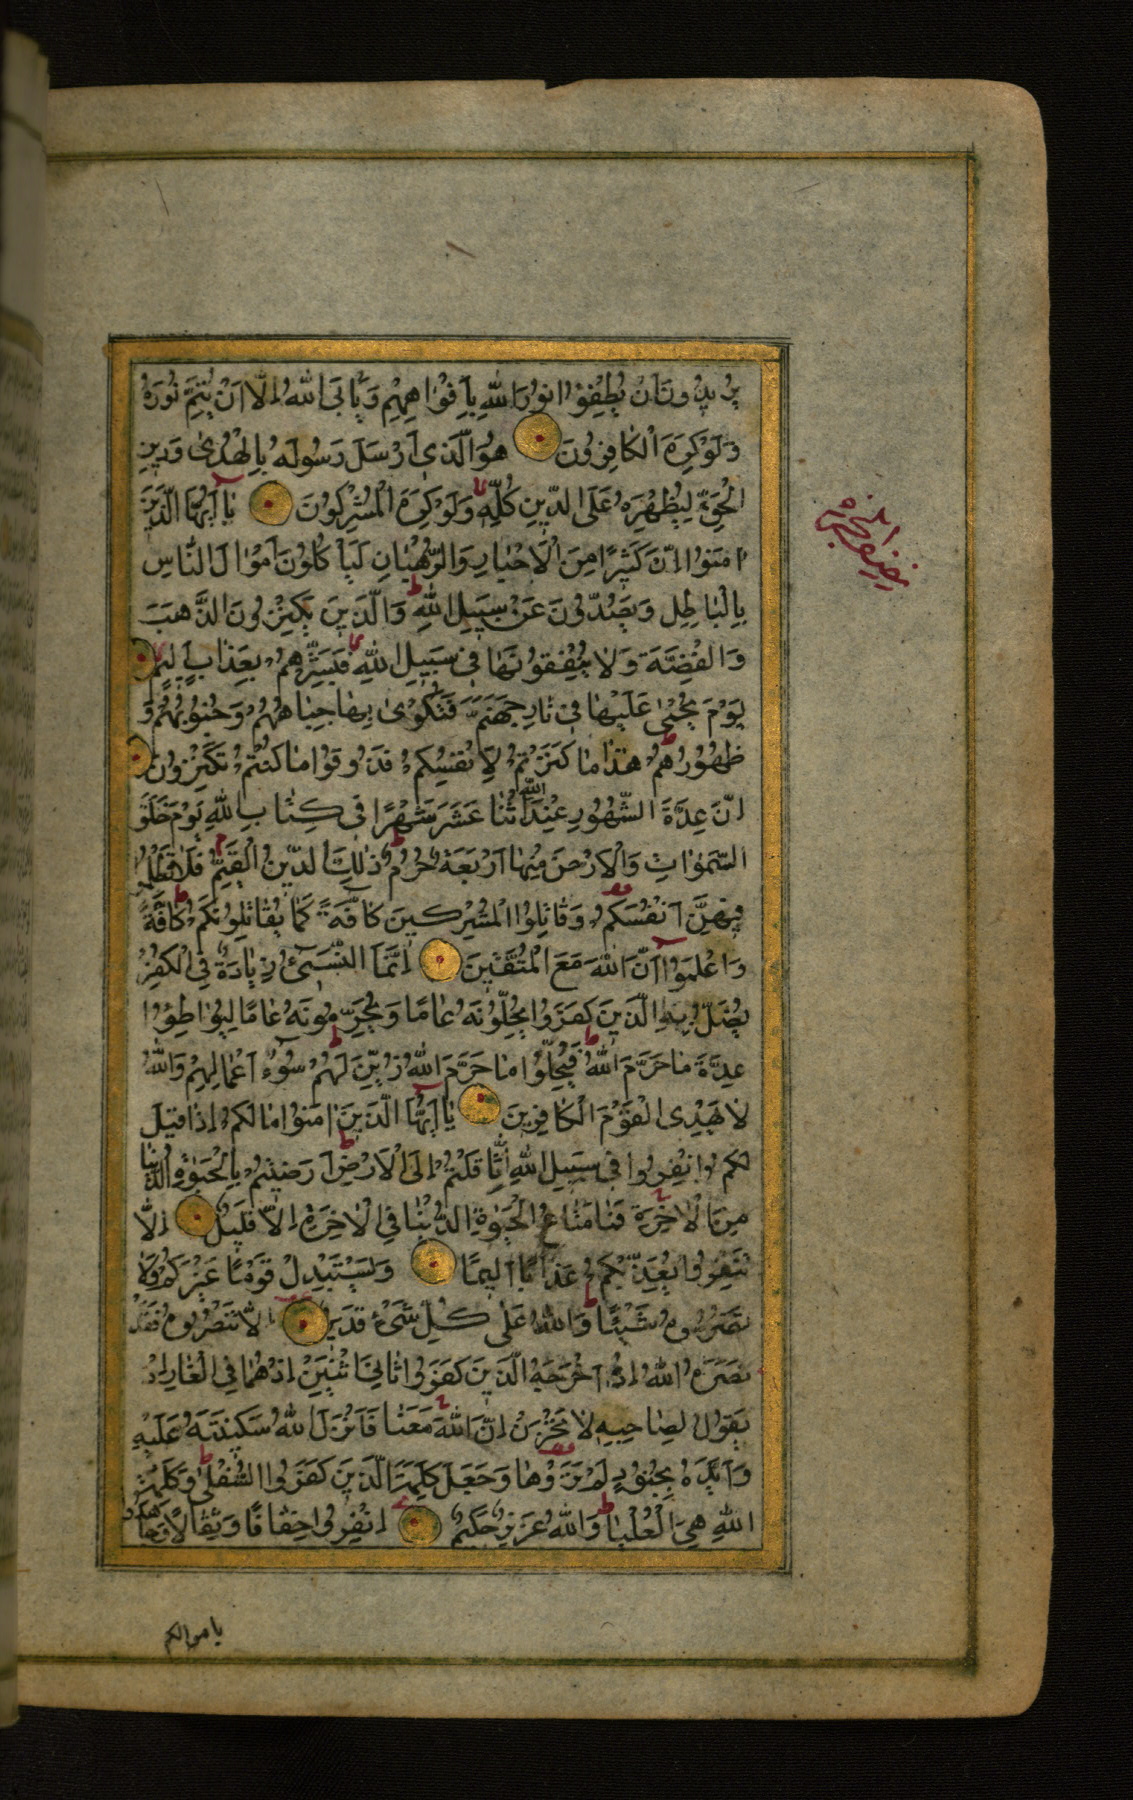 يُرِيدُونَ اَنْ يُطْفِؤُا نُورَ اللهِ بِاَفْوٰاهِهِمْ وَيَأْبَى اللهُ اِلّٰا اَنْ يُتِمَّ نُورَهُ
وَلَوْكَرِهَ الْكٰافِرُونَ هُوَ الَّذِى اَرْسَلَ رَسُولَهُ بِالْهُدٰى وَدِينِ
الْحَقِّ لِيُظْهِرَهُ عَلَى الدِّينِ كُلِّهِ وَلَوْكَرِهَ الْمُشْرِكُونَ يٰا اَيُّهَا الَّذِينَ
اٰمَنُوا اِنَّ كَثِيرًا مِنَ الْاَحْبٰارِ وَالرُّهْبٰانِ لَيَأْكُلُونَ اَمْوٰالَ النّٰاسِ
بِالْبٰاطِلِ وَيَصُدُّونَ عَنْ سَبِيلِ اللهِ وَالَّذِينَ يَكْنِزُونَ الذَّهَبَ
وَالْفِضَّةَ وَلٰا يُنْفِقُونَهٰا فِى سَبِيلِ اللهِ فَبَشِّرْهُمْ بِعَذٰابٍ اَلِيمٍ
يَوْمَ يُحْمٰى عَلَيْهٰا فِى نٰارِ جَهَنَّمَ فَتُكْوٰى بِهٰا جِبٰاهُهُمْ وَجُنُوبُهُمْ وَ
ظُهُورُهُمْ هٰذٰا مٰا كَنَزْتُمْ لِاَنْفُسِكُمْ فَذُوقُوا مٰا كُنْتُمْ تَكْنِزُونَ
اِنَّ عِدَّةَ الشُّهُورِ عِنْدَ اللهِ اثْنٰا عَشَرَ شَهْرًا فِى كِتٰابِ اللهِ يَوْمَ خَلَقَ
السَّمٰوٰاتِ وَالْاَرْضَ مِنْهٰا اَرْبَعَةٌ حُرُمٌ ذٰلِكَ الدِّينُ الْقَيِّمُ فَلٰا تَظْلِمُوا
فِيهِنَّ اَنْفُسَكُمْ وَقٰاتِلُوا الْمُشْرِكِينَ كٰافَّةً كَمٰا يُقٰاتِلُونَكُمْ كٰافَّةً
وَاعْلَمُوا اَنَّ اللهَ مَعَ الْمُتَّقِينَ اِنَّمَا النَّسِىءُ زِيٰادَةٌ فِى الْكُفْرِ
يُضَلُّ بِهِ الَّذِينَ كَفَرُوا يُحِلُّونَهُ عٰامًا وَيُحَرِّمُونَهُ عٰامًا لِيُوٰاطِؤُا
عِدَّةَ مٰا حَرَّمَ اللهُ فَيُحِلُّوا مٰا حَرَّمَ اللهُ زُيِّنَ لَهُمْ سُوءُ اَعْمٰالِهِمْ وَاللهُ
لٰا يَهْدِى الْقَوْمَ الْكٰافِرِينَ يٰا اَيُّهَا الَّذِينَ اٰمَنُوا مٰالَكُمْ اِذٰا قِيلَ
لَكُمُ انْفِرُوا فِى سَبِيلِ اللهِ اثّٰاقَلْتُمْ اِلَى الْاَرْضِ اَرَضِيتُمْ بِالْحَيٰوةِ الدُّنْيٰا
مِنَ الْاٰخِرَةِ فَمٰا مَتٰاعُ الْحَيٰوةِ الدُّنْيٰا فِى الْاٰخِرَةِ اِلّٰا قَلِيلٌ اِلّٰا
تَنْفِرُوا يُعَذِّبْكُمْ عَذٰابًا اَلِيمًا وَيَسْتَبْدِلْ قَوْمًا غَيْرَكُمْ وَلٰا
تَضُرُّوهُ شَيْئًا وَاللهُ عَلٰى كُلِّ شَىْءٍ قَدِيرٌ اِلّٰا تَنْصُرُوهُ فَقَدْ
نَصَرَهُ اللهُ اِذْ اَخْرَجَهُ الَّذِينَ كَفَرُوا ثٰانِىَ اثْنَيْنِ اِذْ هُمٰا فِى الْغٰارِ اِذْ
يَقُولُ لِصٰاحِبِهِ لٰا تَحْزَنْ اِنَّ اللهَ مَعَنٰا فَاَنْزَلَ اللهُ سَكِينَتَهُ عَلَيْهِ
وَاَيَّدَهُ بِجُنُودٍ لَمْ تَرَوْهٰا وَجَعَلَ كَلِمَةَ الَّذِينَ كَفَرُوا السُّفْلٰى وَكَلِمَةُ
اللهِ هِىَ الْعُلْيٰا وَاللهُ عَزِيزٌ حَكِيمٌ اِنْفِرُوا خِفٰافًا وَثِقٰالًا وَجٰاهِدُوا
باموالكم
نصف الحزب